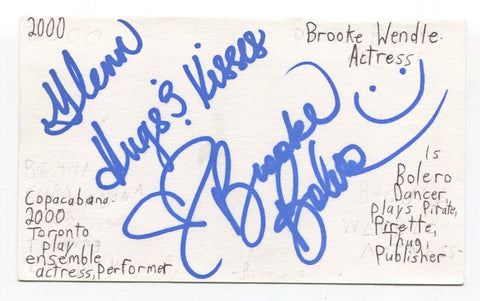 2000
Brooke Wendle
Actress
Glenn
Hugs & Kisses
Brooke
Bolero
Copacabana
2000
Toronto
play
ensemble
actress, performer
Is
Bolero
Dancer,
plays Pirate,
Pirette,
Thug,
Publisher